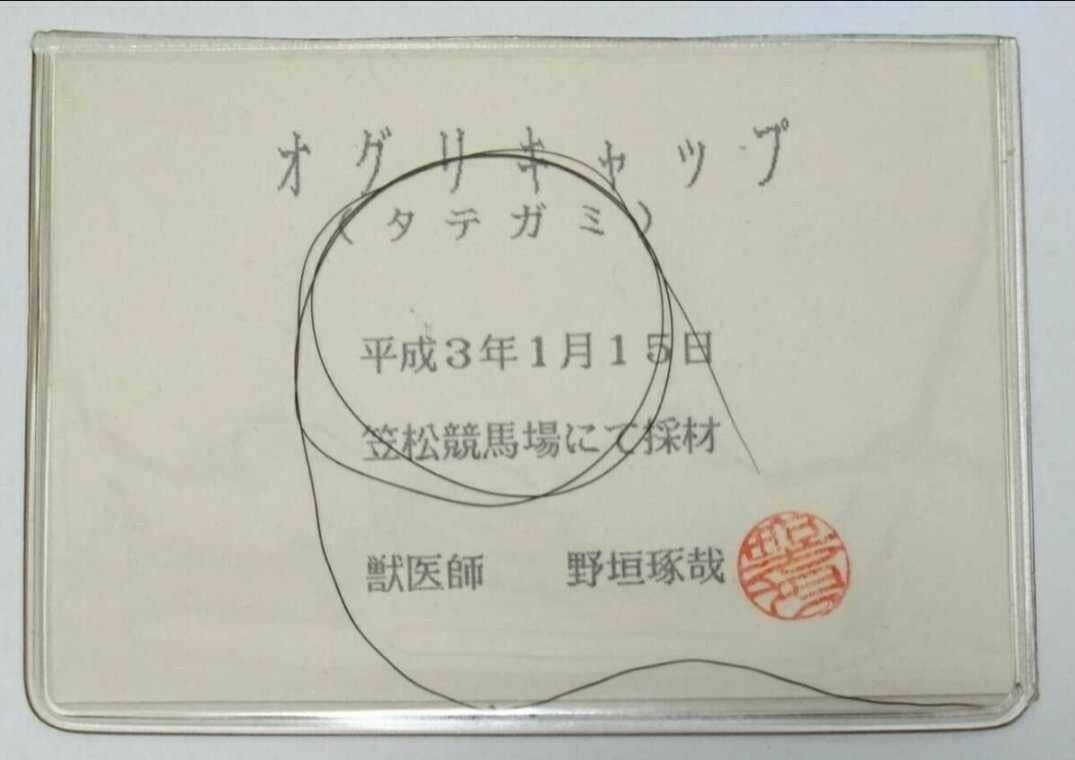 オグリキャップ
(タテガミ)
平成3年1月15日
笠松競馬場にて採材
獣医師 野垣琢哉